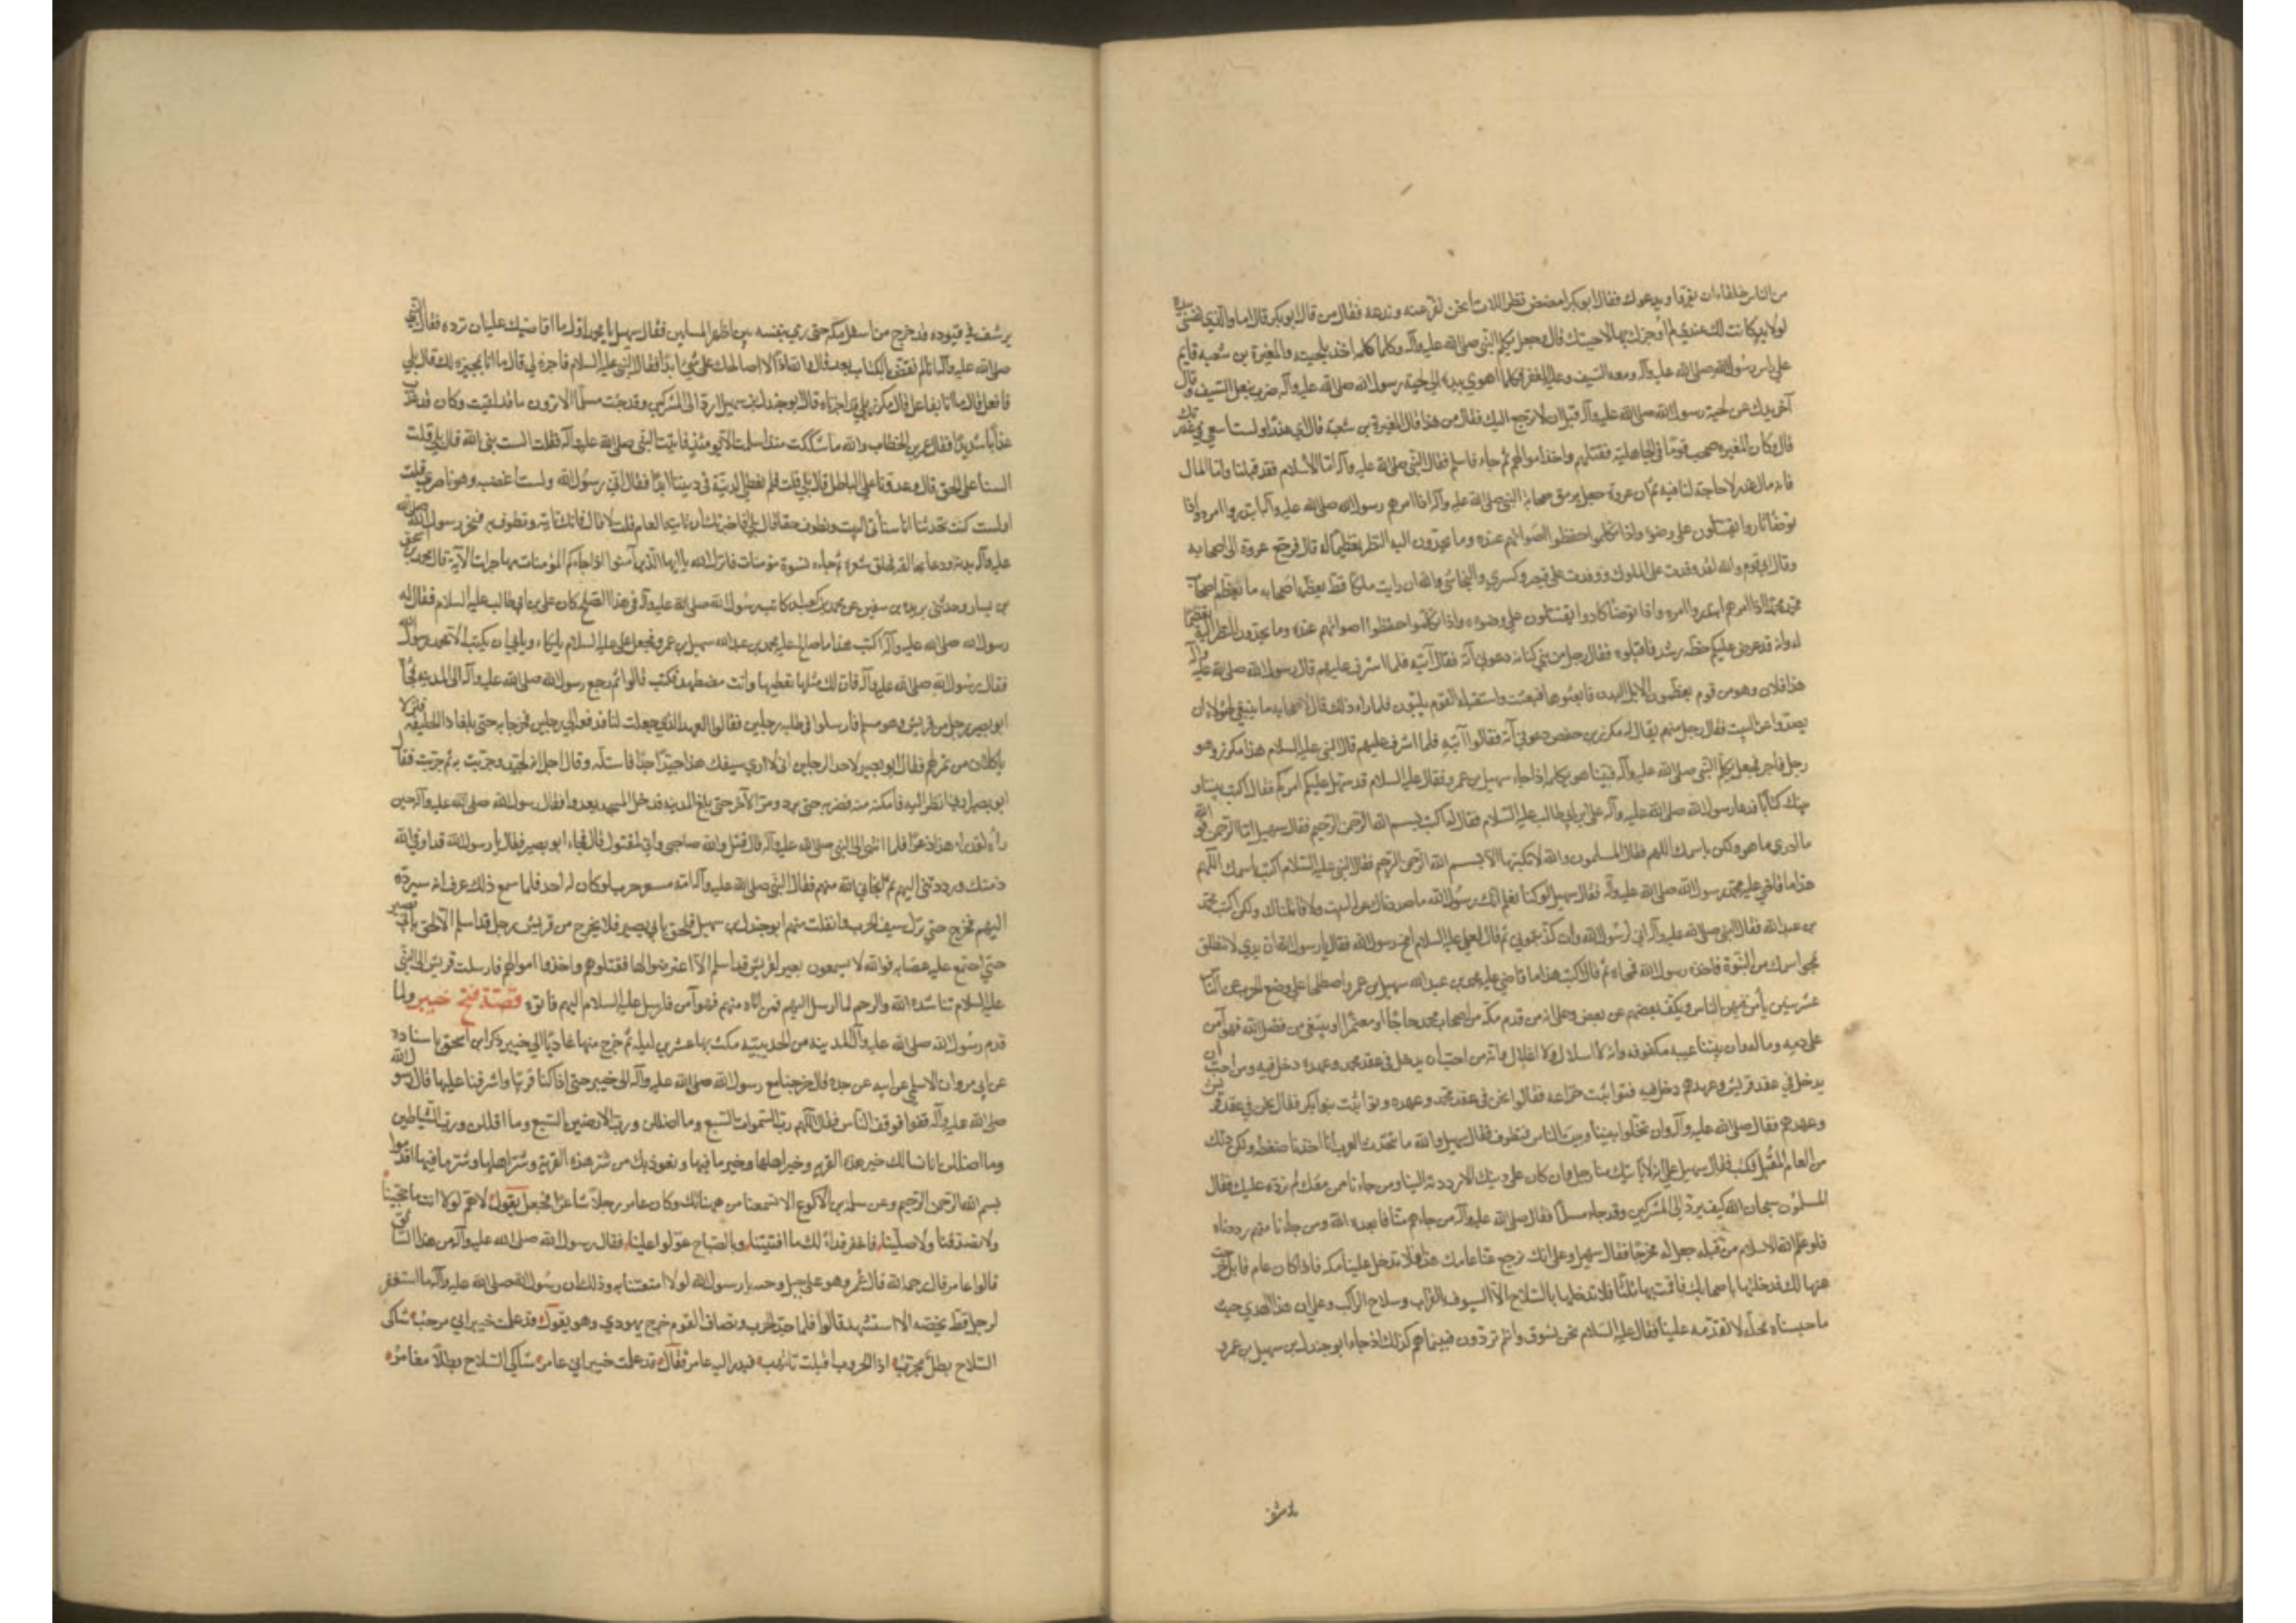 من الناس خلقاء ان يفروا ويدعوك فقال ابو بكر امصص بظر اللات انحن نفر عنه وندعه فقال من قال ابو بكر قال اما والذي نفسي بيده
لولا يد كانت لك عندي لم اجزك بها لاجبتك قال وجعل يكلم النبي صلى الله عليه وآله وكلما كلمه اخذ بلحيته والمغيرة بن شعبه قايم
على راس رسول الله صلى الله عليه وآله ومعه السيف وعليه المغفر فكلما اهوى بيده الى لحية رسول الله صلى الله عليه وآله ضرب بنعل السيف وقال
آخر يدك عن لحية رسول الله صلى الله عليه وآله قبل ان لا ترجع اليك فقال من هذا قال المغيرة بن شعبة قال اي غدر اولست اسعى في غدرتك
قال وكان المغيرة صحب قوما في الجاهلية فقتلهم واخذ اموالهم ثم جاء فاسلم فقال النبي صلى الله عليه وآله اما الاسلام فقد قبلنا واما المال
فانه مال غدر لا حاجة لنا فيه ثم ان عروة جعل يرمق صحابة النبي صلى الله عليه وآله اذا امرهم رسول الله صلى الله عليه وآله ابتدروا امره واذا
توضأ ثاروا يقتتلون على وضوئه واذا تكلموا خفضوا اصواتهم عنده وما يحدون اليه النظر تعظيما له قال فرجع عروة الى اصحابه
وقال اي قوم والله لقد وفدت على الملوك ووفدت على قيصر وكسرى والنجاشي والله ان رايت ملكا قط يعظمه اصحابه ما يعظم اصحاب
محمد محمدا اذا امرهم ابتدروا امره واذا توضأ كادوا يقتتلون على وضوءه واذا تكلموا خفضوا اصواتهم عنده وما يحدون النظر اليه تعظيما
له وانه قد عرض عليكم خطة رشد فاقبلوه فقال رجل من بني كنانه دعوني آته فقال آتيه فلما اشرف عليهم قال رسول الله صلى الله عليه وآله
هذا فلان وهو من قوم يعظمون الابل البدن فابعثوها فبعثت واستقبله القوم يلبون فلما راى ذلك قال لاصحابه ما ينبغي لهؤلاء ان
يصدوا عن البيت فقال رجل منهم يقال له مكرز بن حفص دعوني آته فقالوا آتيه فلما اشرف عليهم قال النبي عليه السلام هذا مكرز وهو
رجل فاجر فجعل يكلم النبي صلى الله عليه وآله فبينا هو يكلمه اذا جاء سهيل بن عمرو فقال عليه السلام قد سهل عليكم امركم فقال اكتب بيننا و
بينك كتابا فدعا رسول الله صلى الله عليه وآله علي بن ابي طالب عليه السلام فقال له اكتب بسم الله الرحمن الرحيم فقال سهيل اما الرحمن فوالله
ما ادري ما هو ولكن باسمك اللهم فقال المسلمون والله لا نكتبها الا بسم الله الرحمن الرحيم فقال النبي عليه السلام اكتب باسمك اللهم
هذا ما قاضى عليه محمد رسول الله صلى الله عليه وآله فقال سهيل لو كنا نعلم انك رسول الله ما صددناك عن البيت ولا قاتلناك ولكن اكتب محمد
بن عبد الله فقال النبي صلى الله عليه وآله اني لرسول الله وان كذبتموني ثم قال لعلي عليه السلام امح رسول الله فقال يا رسول الله ان يدي لا تنطلق
بمحو اسمك من النبوة فاخذه رسول الله فمحاه ثم قال اكتب هذا ما قاضى عليه محمد بن عبد الله سهيل بن عمرو واصطلحا على وضع الحرب عن الناس
عشر سنين يأمن فيهن الناس ويكف بعضهم عن بعض وعلى انه من قدم مكة من اصحاب محمد حاجا او معتمرا او يبتغي من فضل الله فهو آمن
على دمه وماله وان بيننا عيبه مكفوفه وانه لا اسلال ولا اغلال وانه من احب ان يدخل في عقد محمد وعهده دخل فيه ومن احب ان
يدخل في عقد قريش وعهدهم دخل فيه فتواثبت خزاعه فقالوا نحن في عقد محمد وعهده وتواثبت بنو بكر فقالوا نحن في عقد قريش
وعهدهم فقال صلى الله عليه وآله وان تخلوا بيننا وبين الناس فنطوف فقال سهيل والله ما تتحدث العرب انا اخذنا ضغطة ولكن ذلك
من العام المقبل فكتب فقال سهيل على انه لا يأتيك منا رجل وان كان على دينك الا رددته الينا ومن جاءنا ممن معك لم نرده عليك فقال
المسلمون سبحان الله كيف يرد الى المشركين وقد جاء مسلما فقال صلى الله عليه وآله من جاءهم منا فابعده الله ومن جاءنا منهم رددناه
فلو علم الله الاسلام من قلبه جعل له مخرجا فقال سهيل وعلى انك ترجع عنا عامك هذا فلا تدخل علينا مكه فاذا كان عام قابل خرجنا
عنها لك فدخلتها باصحابك فاقمت بها ثلثا فلا تدخلها بالسلاح الا السيوف بالقراب وسلاح الراكب وعلى ان هذا الهدي حيث
ما حبسناه محله لا تقدمه علينا فقال عليه السلام نحن نسوق وانتم تردون فبينما هم كذلك اذ جاء ابو جندل بن سهيل بن عمرو
يرسف
يرسف في قيوده قد خرج من اسفل مكه حتى رمى بنفسه بين اظهر المسلمين فقال سهيل يا محمد اول ما اقاضيك عليه ان ترده فقال النبي
صلى الله عليه وآله انا لم نقض بالكتاب بعد قال والله اذا لا اصالحك على شيء ابدا فقال النبي عليه السلام فاجره لي قال ما انا بمجيره لك قال بلى
فافعل قال ما انا بفاعل قال مكرز بلى قد اجرناه قال ابو جندل بن سهيل ارد الى المشركين وقد جئت مسلما الا ترون ما قد لقيت وكان قد عذب
عذابا شديدا فقال عمر بن الخطاب والله ما شككت منذ اسلمت الا يومئذ فاتيت النبي صلى الله عليه وآله فقلت الست نبي الله قال بلى قلت
السنا على الحق قال وعدونا على الباطل قال بلى قلت فلم نعطي الدنية في ديننا اذا فقال اني رسول الله ولست اعصيه وهو ناصري قلت
اولست كنت تحدثنا انا سنأتي البيت ونطوف حقا قال بلى افاخبرتك ان تأتيه العام قلت لا قال فانك تأتيه وتطوف به فنحر رسول الله صلى الله
عليه وآله بدنه ودعا بحالقه فحلق شعره ثم جاءه نسوة مؤمنات فانزل الله يا ايها الذين آمنوا اذا جاءكم المؤمنات مهاجرات الآية قال محمد بن اسحق
بن يسار وحدثني بريده بن سفين عن محمد بن كعب ان كاتب رسول الله صلى الله عليه وآله في هذا الصلح كان علي بن ابي طالب عليه السلام فقال له
رسول الله صلى الله عليه وآله اكتب هذا ما صالح عليه محمد بن عبد الله سهيل بن عمرو فجعل علي عليه السلام يتلكاء ويابى ان يكتب الا محمد رسول الله
فقال رسول الله صلى الله عليه وآله فان لك مثلها تعطيها وانت مضطهد فكتب قالوا ثم رجع رسول الله صلى الله عليه وآله الى المدينه فجاء
ابو بصير رجل من قريش وهو مسلم فارسلوا في طلبه رجلين فقالوا العهد الذي جعلت لنا فدفعه الى رجلين فخرجا به حتى بلغا ذا الحليفه فنزلا
ياكلان من تمر لهم فقال ابو بصير لاحد الرجلين اني لا ارى سيفك هذا جيدا جدا فاستله وقال اجل انه لجيد وجربت به ثم جربت فقال
ابو بصير ارني انظر اليه فامكنه منه فضربه حتى برد وفر الآخر حتى بلغ المدينه فدخل المسجد يعدوا فقال رسول الله صلى الله عليه وآله حين
رآه لقد راى هذا ذعرا فلما انتهى الى النبي صلى الله عليه وآله قال قتل والله صاحبي واني لمقتول قال فجاء ابو بصير فقال يا رسول الله قد اوفى الله
ذمتك ورددتني اليهم ثم انجاني الله منهم فقال النبي صلى الله عليه وآله امه مسعر حرب لو كان له احد فلما سمع ذلك عرف انه سيرده
اليهم فخرج حتى نزل سيف البحر وانفلت منهم ابو جندل بن سهيل فلحق بابي بصير فلا يخرج من قريش رجل قد اسلم الا لحق بابي بصير
حتى اجتمع عليه عصابه فوالله لا يسمعون بعير لقريش قد اسلم الا اعترضوا لها فقتلوهم واخذوا اموالهم فارسلت قريش الى النبي
عليه السلام تناشده الله والرحم لما ارسل اليهم فمن اتاه منهم فهو آمن فارسل عليه السلام اليهم فاتوه قصة فتح خيبر ولما
قدم رسول الله صلى الله عليه وآله المدينه من الحديبيه مكث بها عشرين ليله ثم خرج منها غاديا الى خيبر ذكر ابن اسحق باسناده
عن ابي مروان الاسلمي عن ابيه عن جده قال خرجنا مع رسول الله صلى الله عليه وآله الى خيبر حتى اذا كنا قريبا واشرفنا عليها قال رسول الله
صلى الله عليه وآله قفوا فوقف الناس فقال اللهم رب السموات السبع وما اضللن ورب الارضين السبع وما اقللن ورب الشياطين
وما اضللن انا نسالك خير هذه القريه وخير اهلها وخير ما فيها ونعوذ بك من شر هذه القرية وشر اهلها وشر ما فيها اقدموا
بسم الله الرحمن الرحيم وعن سلمه بن الاكوع الا تسمعنا من هنيهاتك وكان عامر رجلا شاعرا فجعل يقول لاهم لولا انت ما حجينا
ولا تصدقنا ولا صلينا فاغفر فداء لك ما اقتنينا وبالصباح عولوا علينا فقال رسول الله صلى الله عليه وآله من هذا السائق
قالوا عامر قال يرحمه الله قال عمر وهو على جمل وجب يا رسول الله لولا امتعتنا به وذلك ان رسول الله صلى الله عليه وآله ما استغفر
لرجل قط يخصه الا استشهد قالوا فلما جد الحرب وتصاف القوم خرج يهودي وهو يقول قد علمت خيبر اني مرحب شاكي
السلاح بطل مجرب اذا الحروب اقبلت تلهب فبدر اليه عامر فقال قد علمت خيبر اني عامر شاكي السلاح بطلا مغامر